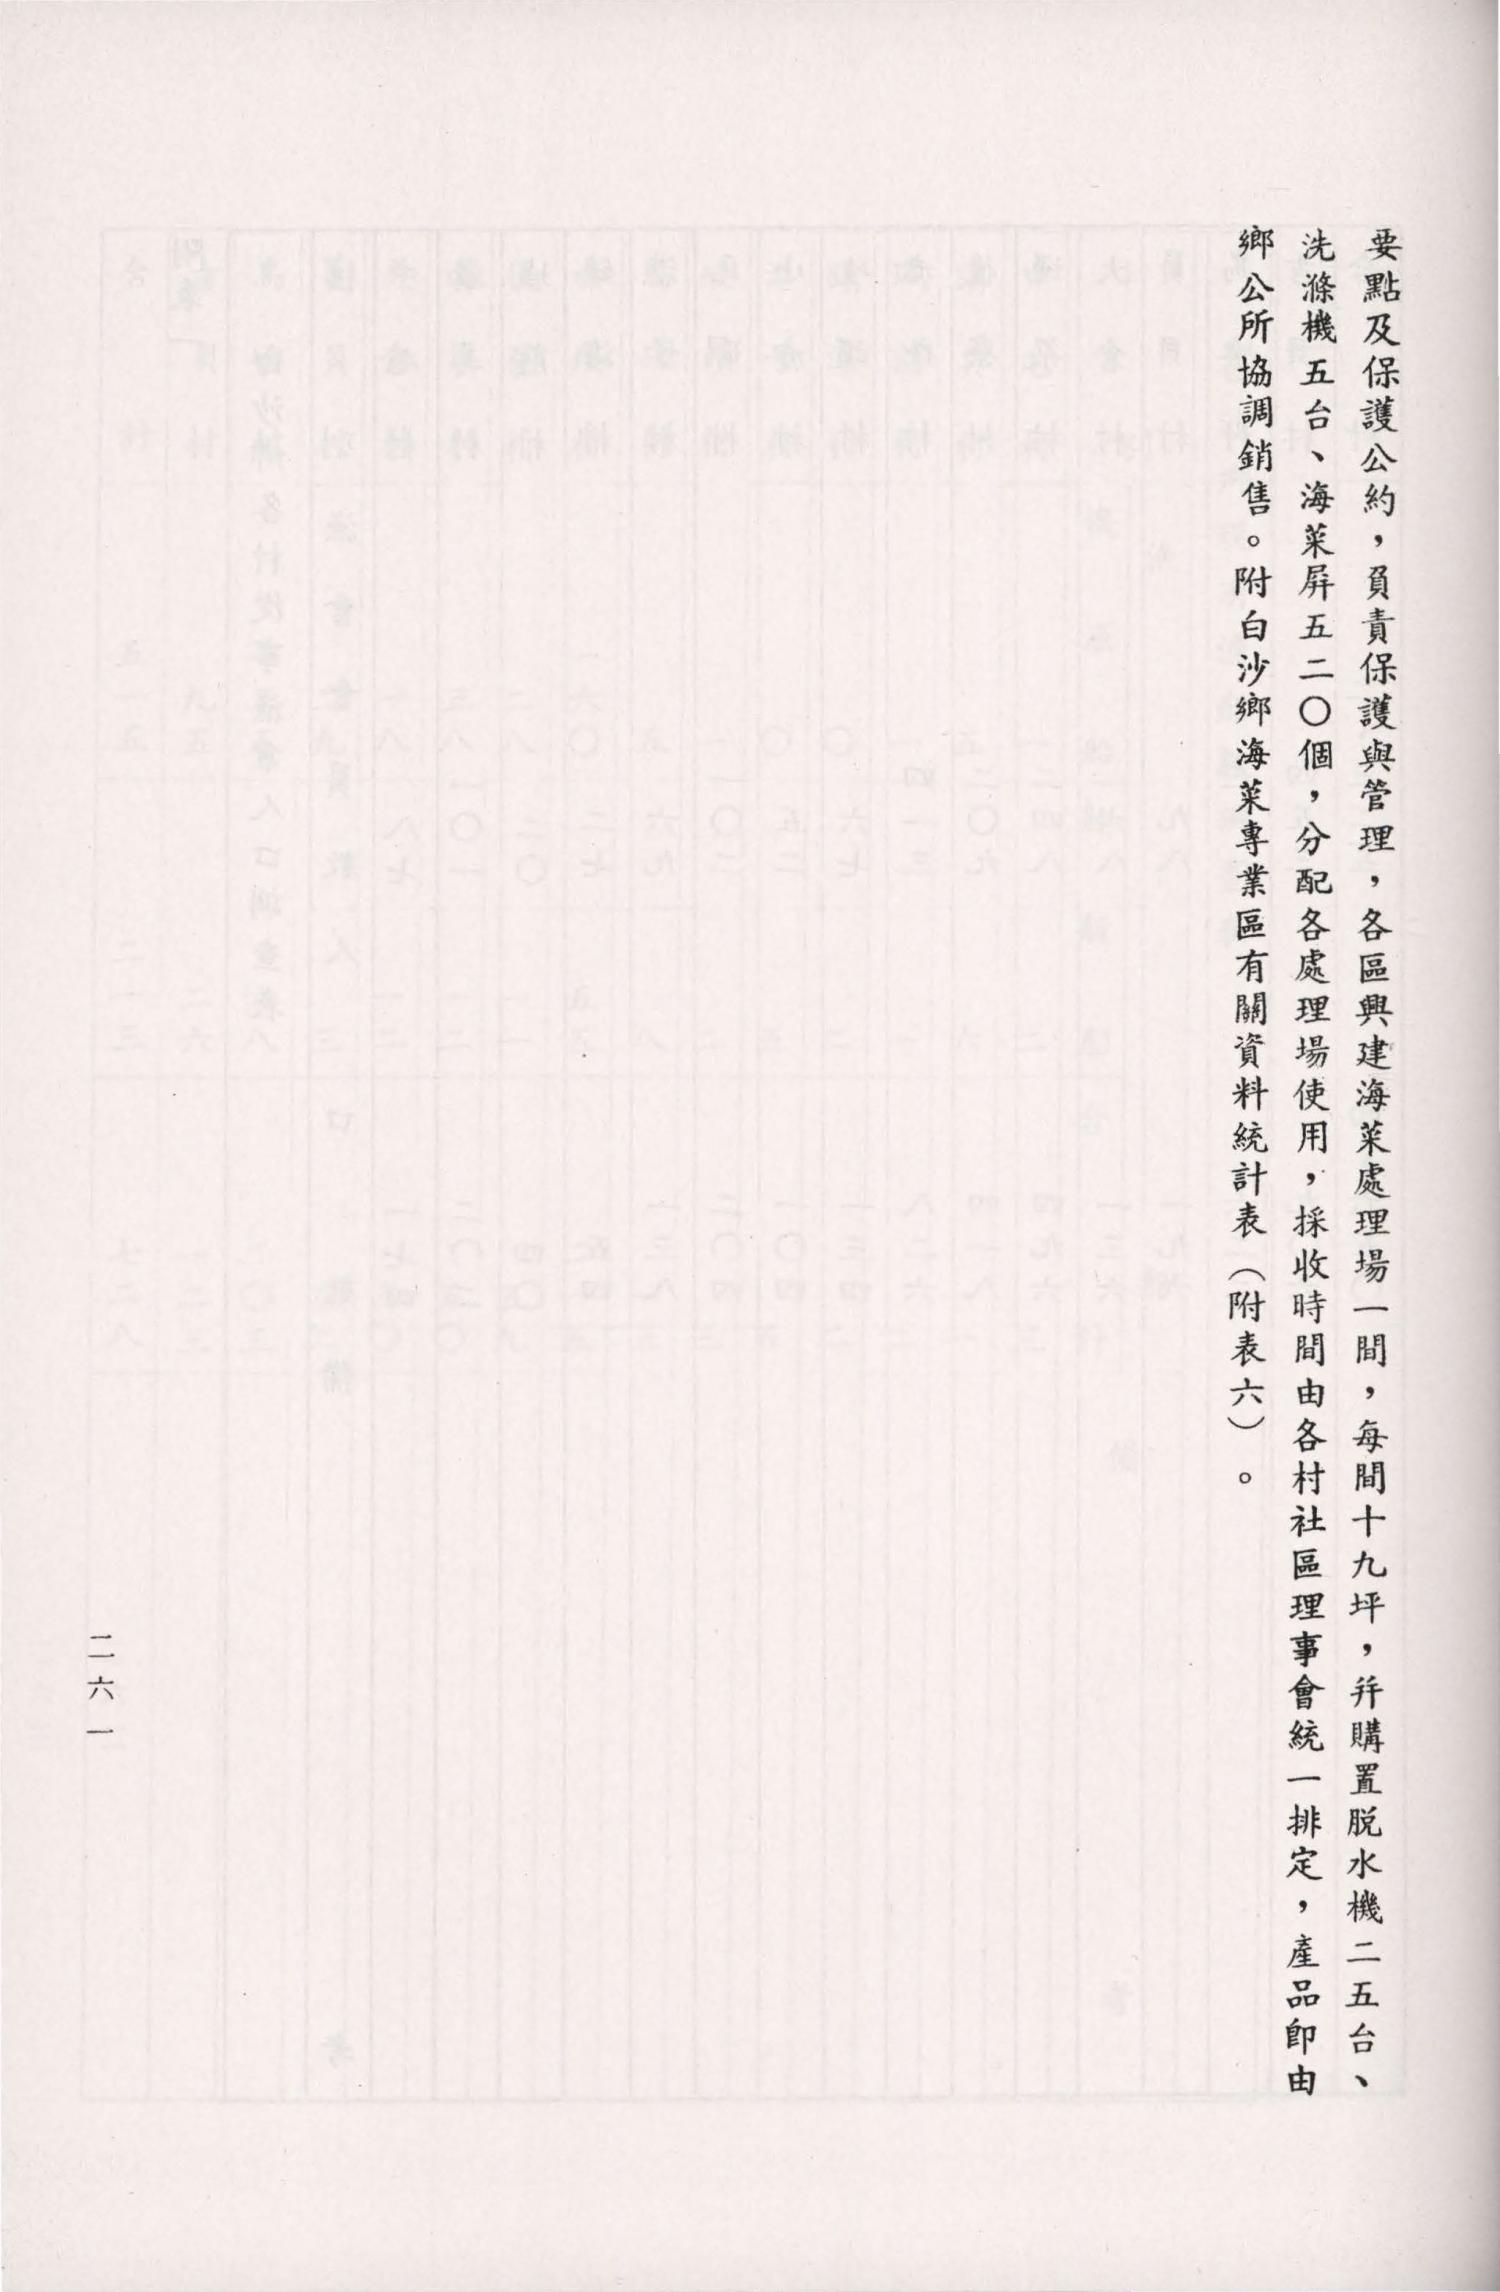 要點及保護公約，負責保護與管理，各區興建海菜處理場一間，每間十九坪，并購置脫水機二五台、
洗滌機五台、海菜屏五二〇個，分配各處理場使用，採收時間由各村社區理事會統一排定，產品即由
鄉公所協調銷售。附白沙鄉海菜專業區有關資料統計表（附表六）。
二六一